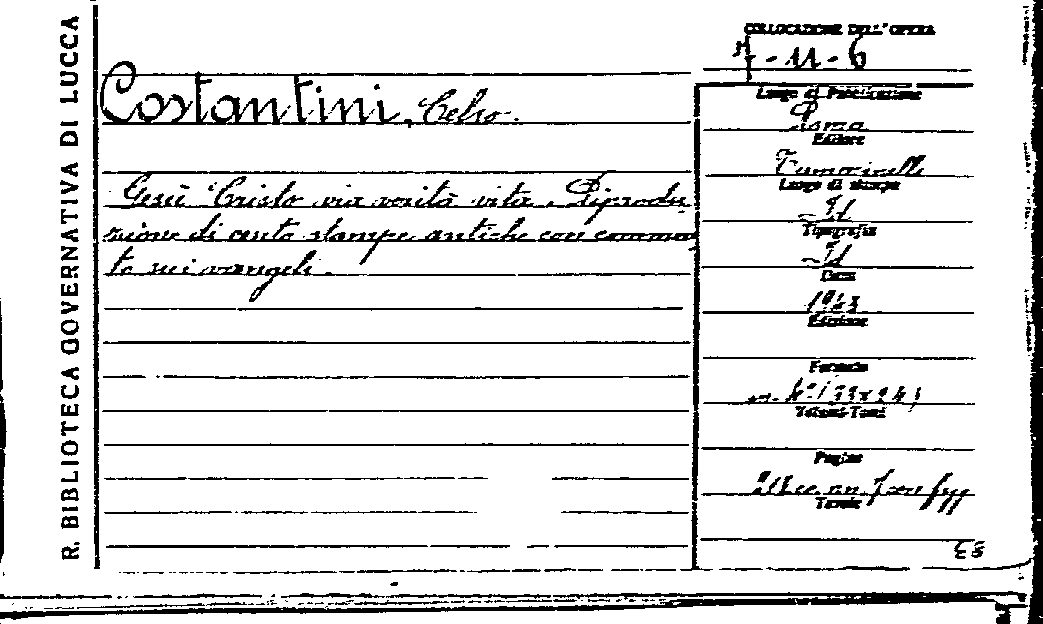 R. BIBLIOTECA GOVERNATIVA DI LUCCA
COLLOCAZIONE DELL'OPERA
7-11-6
Costantini, Celso.
Gesù Cristo via verità vita. Riprodu
zione di cento stampe antiche con commen
to sui vangeli.
Luogo di Pubblicazione
Roma
Editore
Tumminelli
Luogo di stampa
Id
Tipografia
Id
Data
1943
Edizione
Formato
Volumi-Tomi
Pagine
Tavole